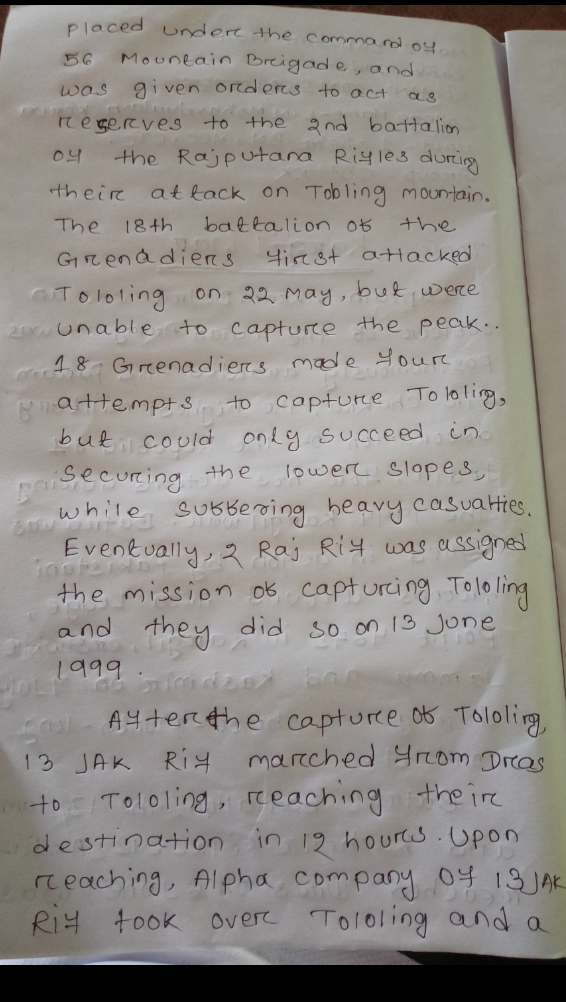 placed under the command of
56 Mountain Brigade, and
was given orders to act as
reserves to the 2nd battalion
of the Rajputana Rifles during
their attack on Tobling mountain.
The 18th battalion of the
Grenadiers first attacked
Tololing on 22 May, but were
unable to capture the peak..
18 Grenadiers made four
attempts to capture Tololing,
but could only succeed in
securing the lower slopes,
while suffering heavy casualties.
Eventually, 2 Raj Rif was assigned
the mission of capturing Tololing
and they did so on 13 June
1999.
After the capture of Tololing,
13 JAK Rif marched from Dras
to Tololing, reaching their
destination in 12 hours. Upon
reaching, Alpha company of 13 JAK
Rif took over Tololing and a